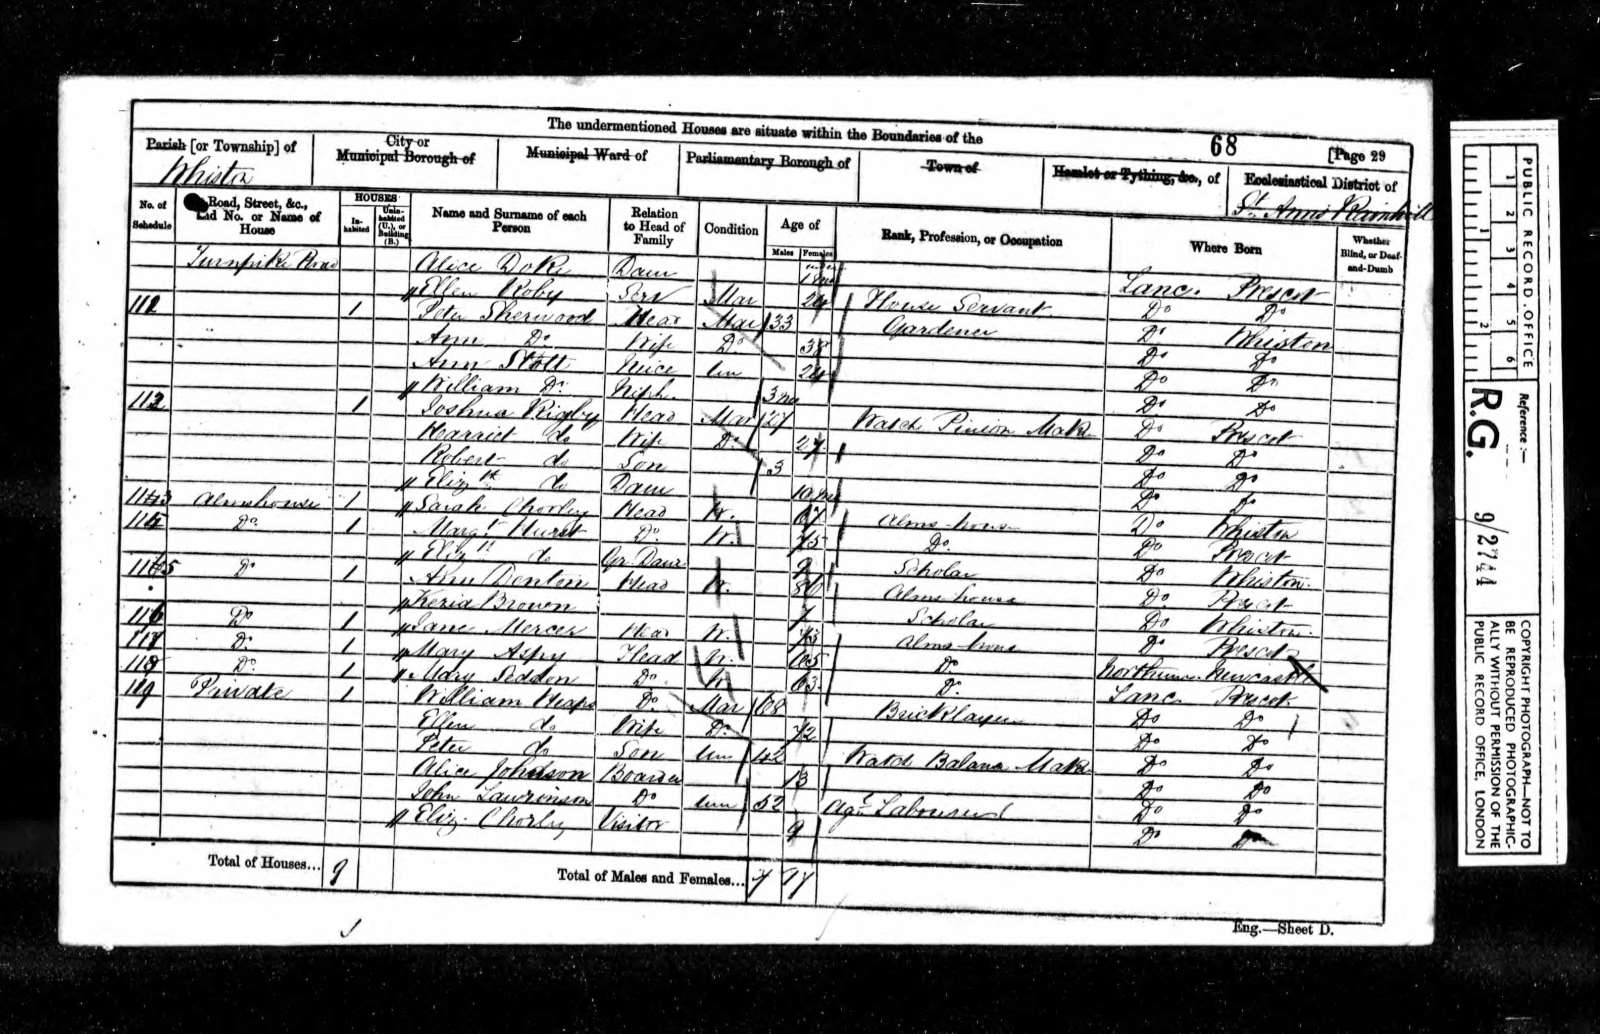 The undermentioned Houses are situate within the Boundaries of the
68
[Page 29
Parish [or Township] of
City or Municipal Borough of
Municipal Ward of
Parliamentary Borough of
Town of
Hamlet or Tything, &c., of
Ecclesiastical District of
Whiston
St. Anns Rainhill
No. of Schedule
Road, Street, &c., and No. or Name of House
HOUSES
In-habited
Unin-habited (U.), or Building (B.)
Name and Surname of each Person
Relation to Head of Family
Condition
Age of
Males
Females
Rank, Profession, or Occupation
Where Born
Whether Blind, or Deaf-and-Dumb
Turnpike Road Alice Doke Daur Lanc. Prescot
Ellen Roby Serv Mar 24 House Servant Do Do
111 1 Peter Sherwood Head Mar 33 Gardener Do Whiston
Ann Do Wife Do 38 Do Do
Ann Stott Niece Un 24 Do Do
William Do Neph. 3 mo Do Do
112 1 Joshua Rigby Head Mar 27 Watch Pinion Make Do Prescot
Harriet do Wife Do 27 Do Do
Robert do Son 3 Do Do
Elizth do Daur 10 mo Do Do
113 Almshouse 1 Sarah Chorley Head W. 67 Alms-house Do Whiston
114 Do 1 Margt Hurst Do W. 75 Do Do Prescot
Elizth do Gr Daur 9 Scholar Do Whiston
115 Do 1 Ann Denton Head W. 80 Alms house Do Prescot
Kezia Brown 7 Scholar Do Whiston
116 Do 1 Jane Mercer Head W. 73 Alms-house Do Prescot
117 Do 1 Mary Aspry Head W. 65 Do Northum Newcastle
118 Do 1 Mary Seddon Do W 63 Do Lanc Prescot
119 Private 1 William Heaps Do Mar 68 Bricklayer Do Do
Ellen do Wife Do 72 Do Do
Peter do Son Un 42 Watch Balance Make Do Do
Alice Johnson Boarder 13 Do Do
John Lawrinson Do Un 52 Agr. Labourer Do Do
Eliz. Chorley Visitor 9 Do Do
Total of Houses... 9
Total of Males and Females... 7 17
Eng.—Sheet D.
PUBLIC RECORD OFFICE
1 2 3 4 5 6
1 2
Reference:—
R.G. 9/2744
COPYRIGHT PHOTOGRAPH—NOT TO
BE REPRODUCED PHOTOGRAPHIC-
ALLY WITHOUT PERMISSION OF THE
PUBLIC RECORD OFFICE, LONDON